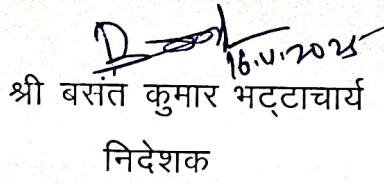 16.4.2025
श्री बसंत कुमार भट्टाचार्य
निदेशक